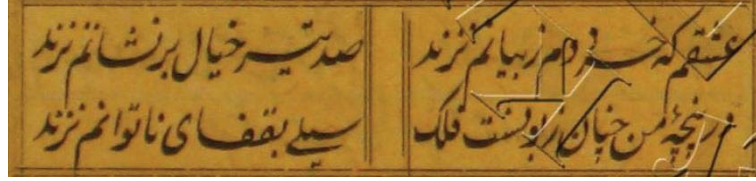 عشقم که خرد دم زبیانم نزند
صد تیر خیال بر نشانم نزند
در پنجهٔ من چنان زبونست فلک
سیلی بقفای ناتوانم نزند